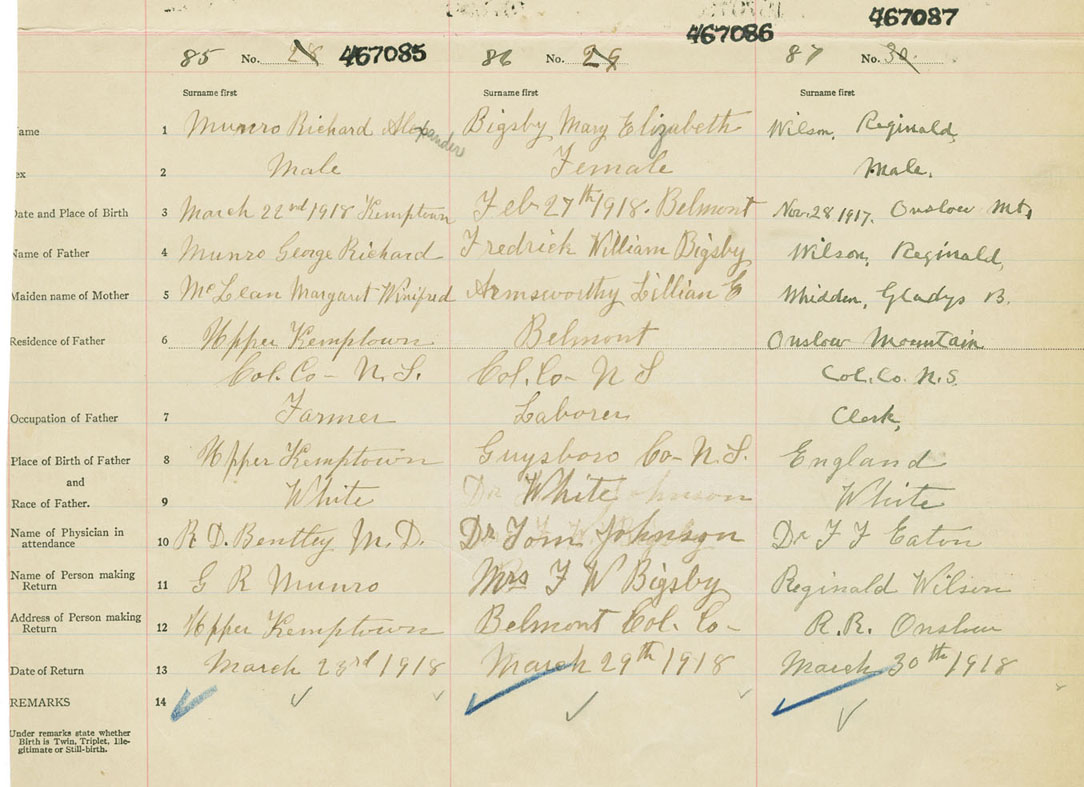 467087
467086
85 No. 28 467085 86 No. 29 87 No. 30
Surname first Surname first Surname first
Name 1 Munro Richard Alexander Bigsby Mary Elizabeth Wilson, Reginald,
ex 2 Male Female Male.
Date and Place of Birth 3 March 22nd 1918 Kemptown Feb 27th 1918. Belmont Nov. 28 1917. Onslow Mt,
Name of Father 4 Munro George Richard Fredrick William Bigsby Wilson, Reginald,
Maiden name of Mother 5 McLean Margaret Winifred Armsworthy Lillian E Whidden, Gladys B.
Residence of Father 6 Upper Kemptown Belmont Onslow Mountain
Col. Co- N.S. Col. Co- N S Col. Co. N.S.
Occupation of Father 7 Farmer Laborer Clerk,
Place of Birth of Father 8 Upper Kemptown Guysboro Co- N.S. England
and
Race of Father. 9 White White White
Name of Physician in attendance 10 R D. Bentley M.D. Dr Tom Johnson Dr F F Eaton
Name of Person making Return 11 G R Munro Mrs F W Bigsby Reginald Wilson
Address of Person making Return 12 Upper Kemptown Belmont Col. Co- R.R. Onslow
Date of Return 13 March 23rd 1918 March 29th 1918 March 30th 1918
REMARKS 14
Under remarks state whether
Birth is Twin, Triplet, Ille-
gitimate or Still-birth.